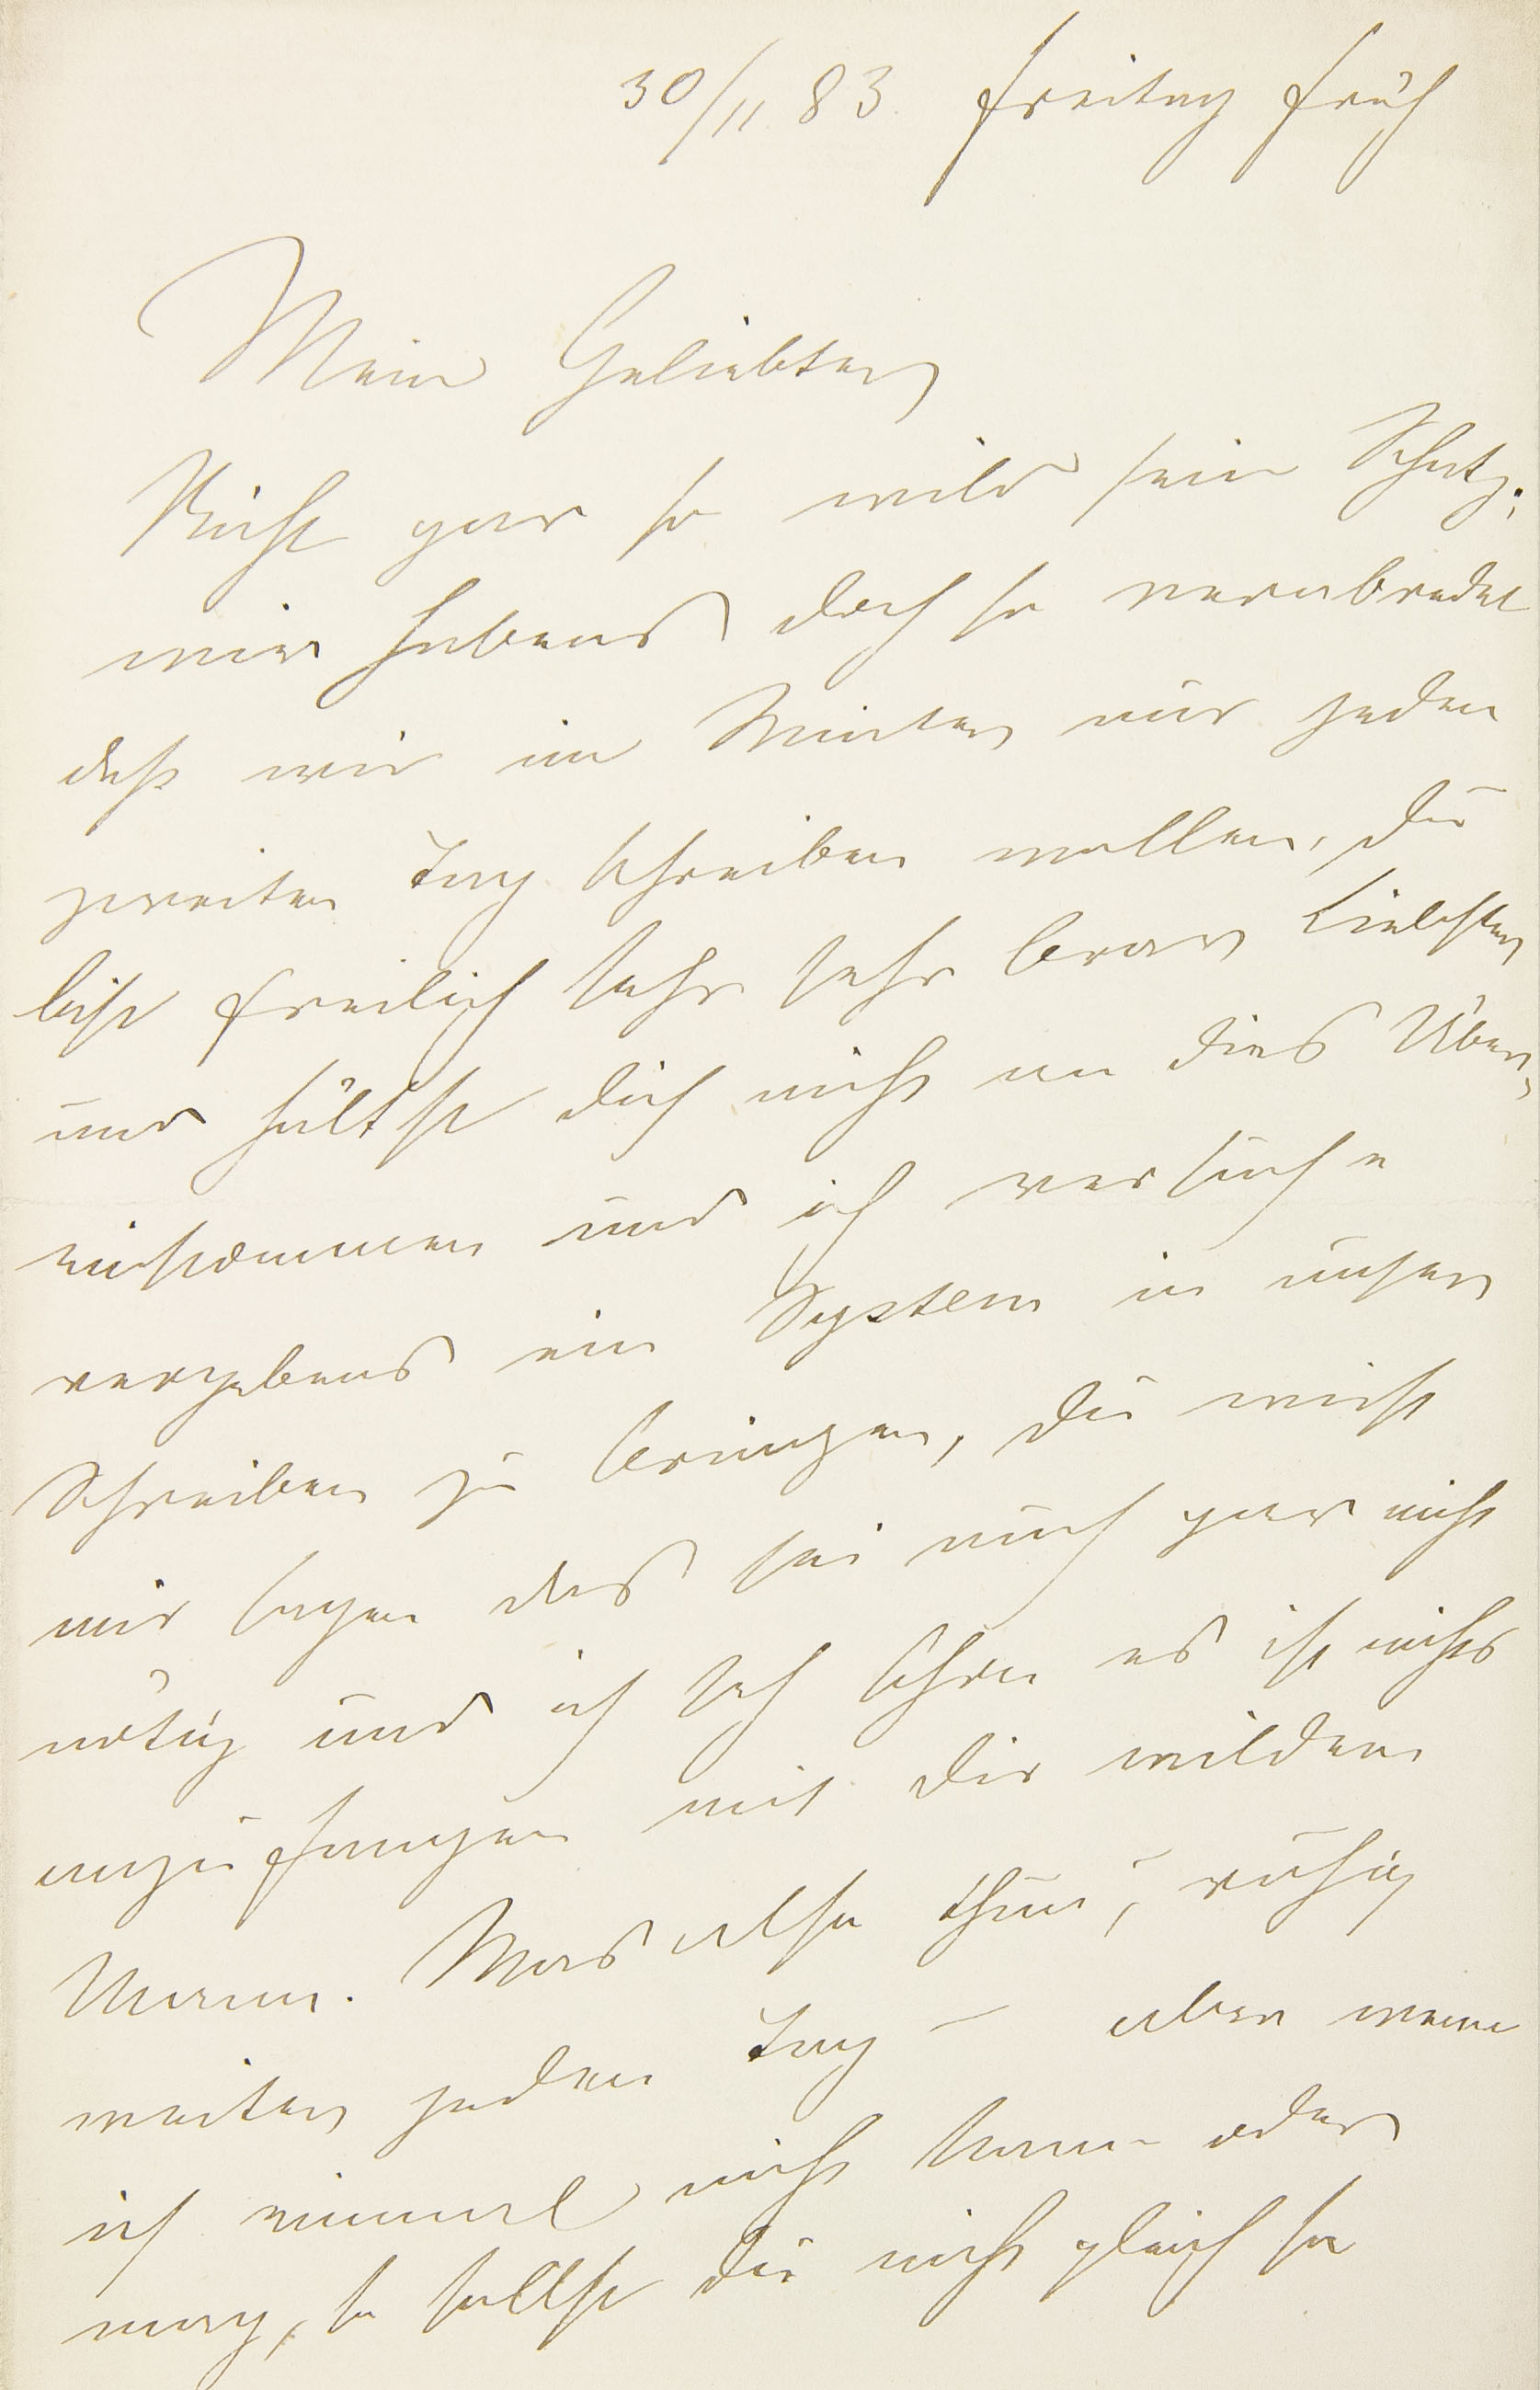 30/11 83. Freitag früh
Mein Geliebter
Nicht gar so wild sein Schatz;
wir habens doch so verabredet
daß wir im Winter nur jeden
zweiten Tag schreiben wollen, Du
bist freilich sehr sehr brav Liebster
und hältst Dich nicht an dies Über-
einkommen und ich versuche
vergebens ein System in unser
Schreiben zu bringen, Du wirst
mir sagen das sei auch gar nicht
nötig und ich seh schon es ist nichts
anzufangen mit Dir wildem
Mann. Was also thun, ruhig
weiter jeden Tag – aber wenn
ich einmal nicht kann oder
mag, so sollst Du nicht gleich so